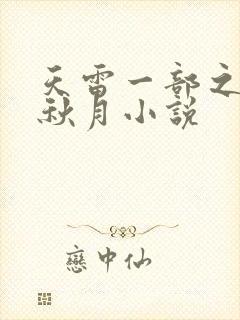 天雷一部之
秋月小説
戀中仙